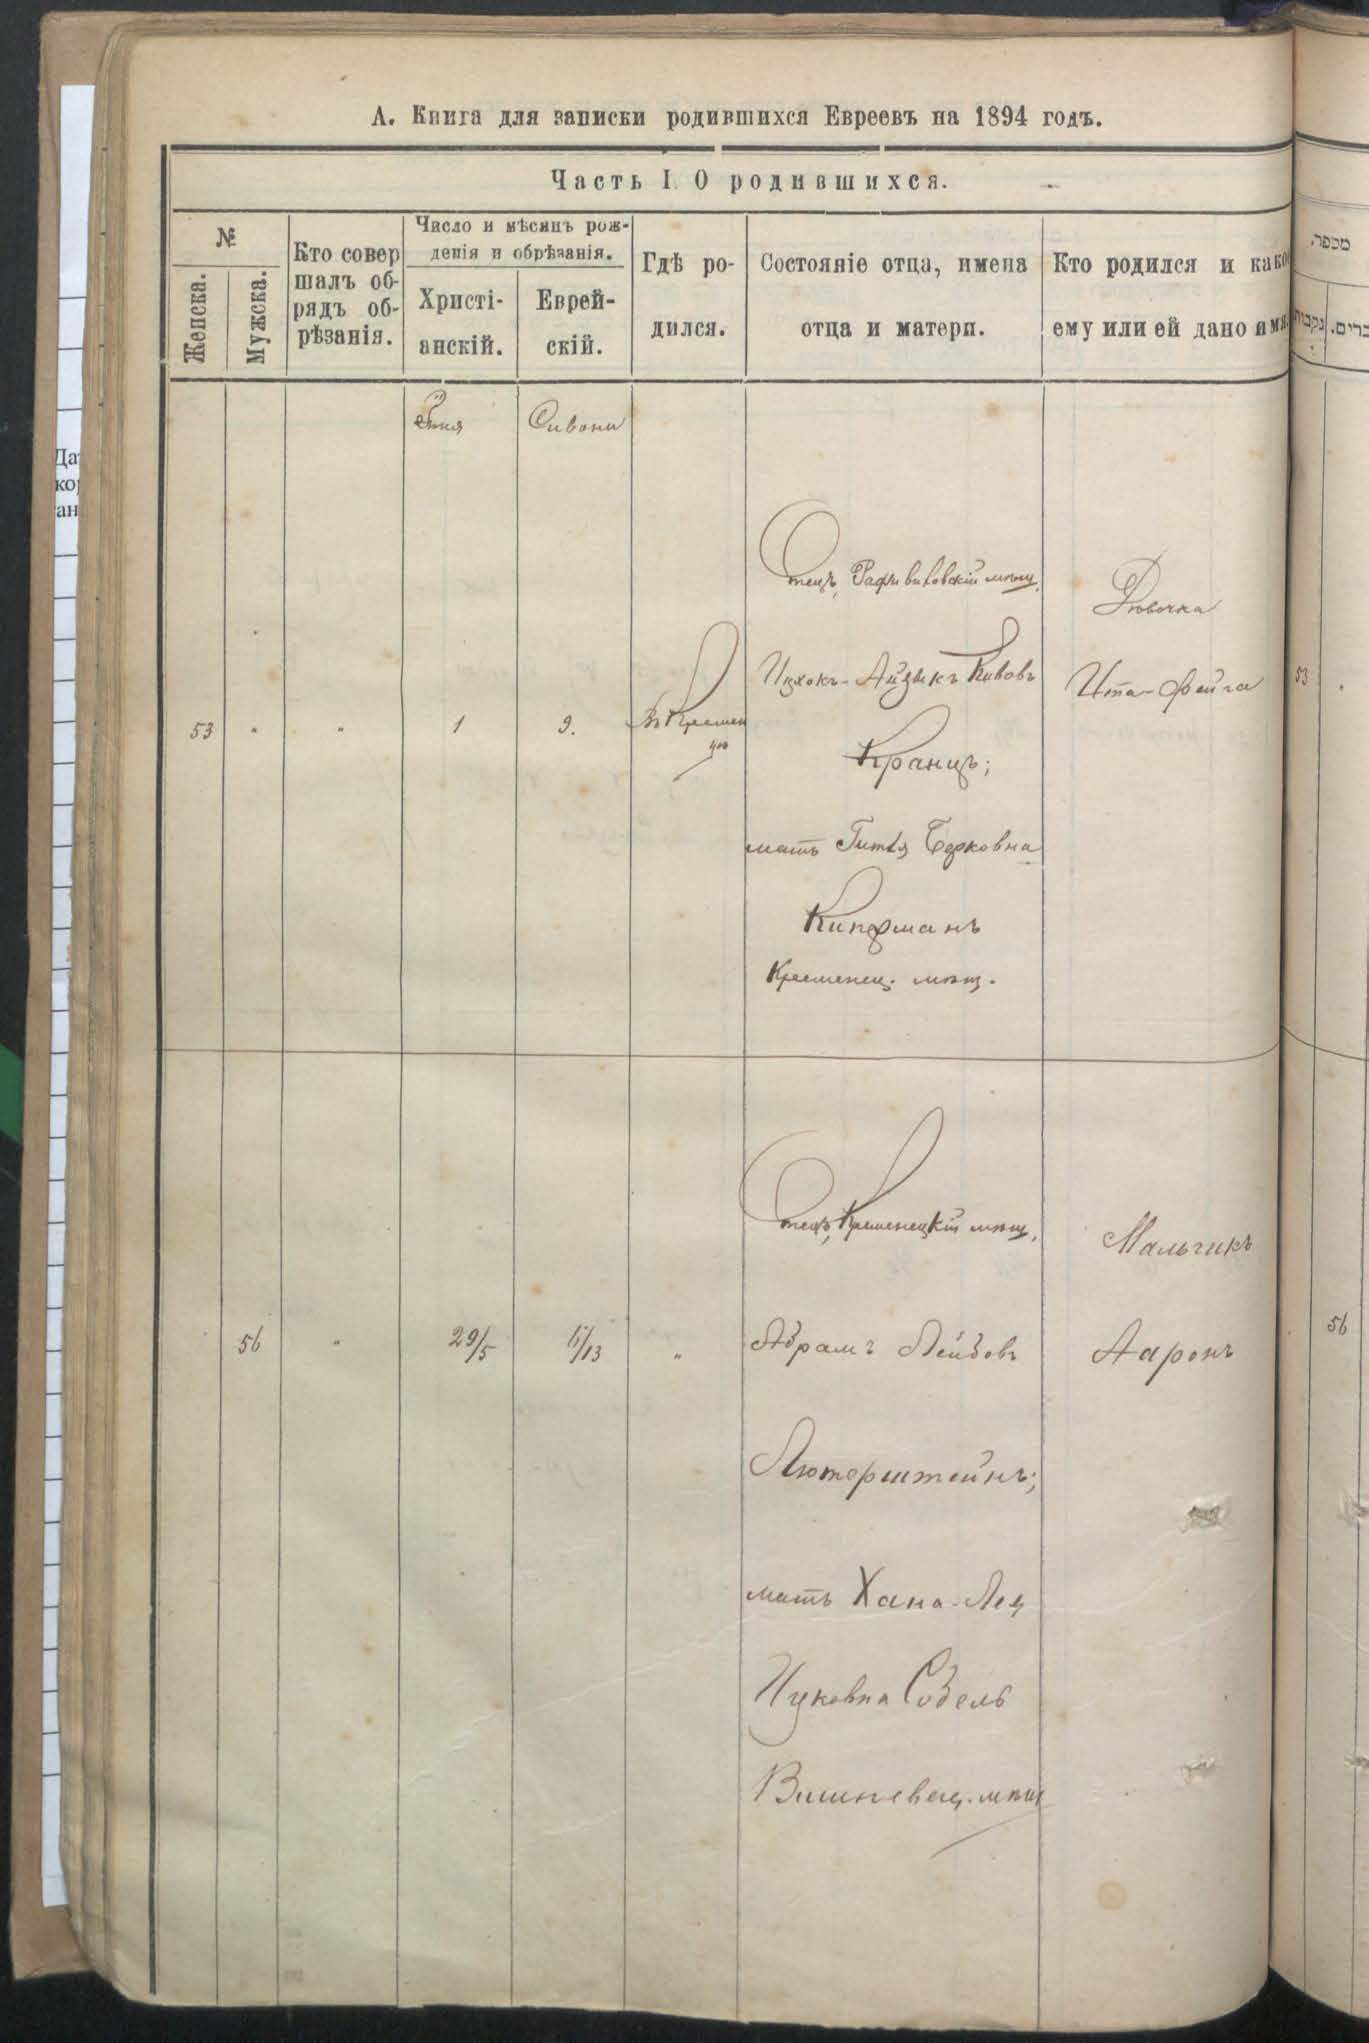 А. Книга для записки родившихся Евреевъ на 1894 годъ.
Часть I. О родившихся.
№
Женска.
Мужска.
Кто совер
шалъ об-
рядъ об-
рѣзанія.
Число и мѣсяцъ рож-
денія и обрѣзанія.
Христі-
анскій.
Еврей-
скій.
Гдѣ ро-
дился.
Состояніе отца, имена
отца и матери.
Кто родился и како
ему или ей дано имя
Сивона
53
"
"
1
9.
Въ Кремен
цѣ
Отецъ, мѣщ.
Ицхокъ-Айзыкъ Кивовъ
Кранцъ;
мать Гитля Берковна
Кипфманъ
Кременец. мѣщ.
Дѣвочка
Ита-Фейга
56
"
29/5
6/13
"
Отецъ, Кременецкій мѣщ.
Абрамъ Лейбовъ
Лютерштейнъ;
мать Хана-Лея
Ицковна Собель
Вишневец. мѣщ
Мальчикъ
Ааронъ
מספר.
נקבות
כרים.
53
56
Да
ко
ан